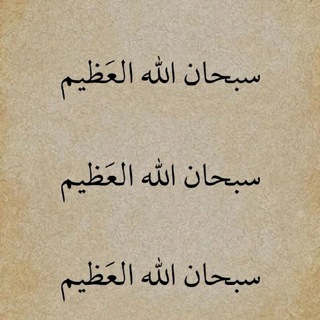 سبحان الله العَظيم
سبحان الله العَظيم
سبحان الله العَظيم